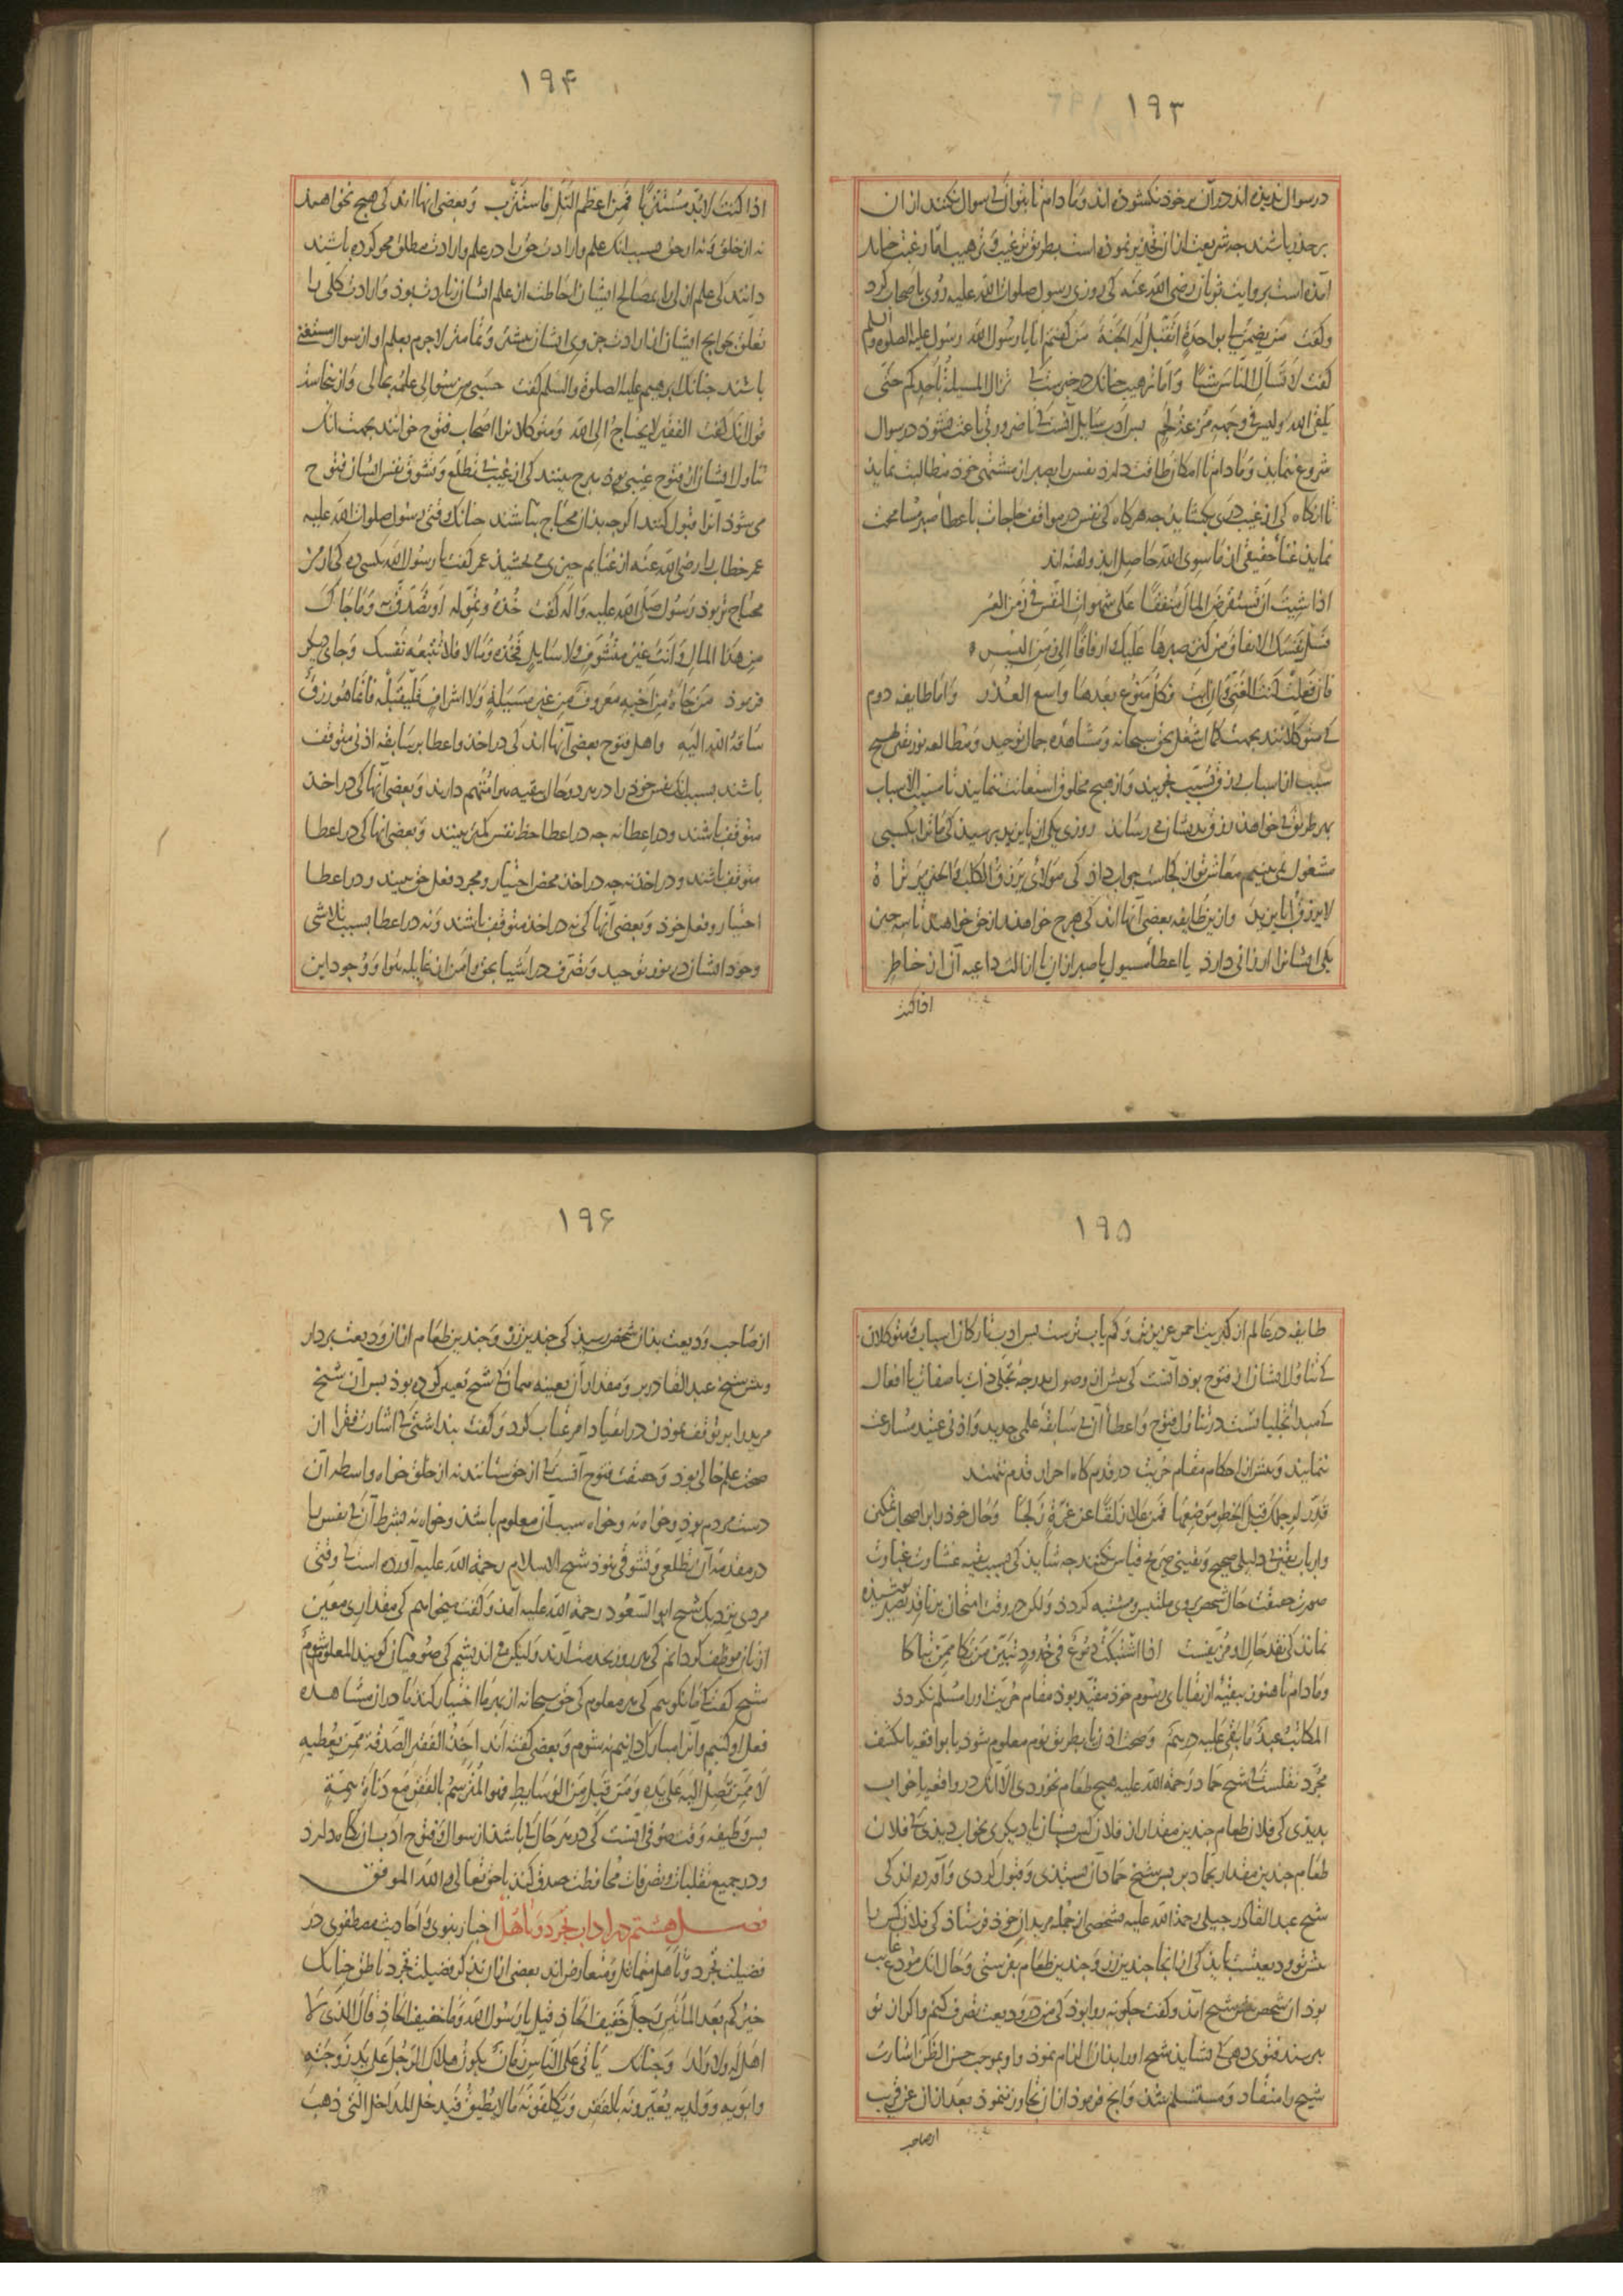 ۱۹۳
در سوال ندیده اند در آن بر خود نکشوده اند و مادام تا بتوانند سوال نکنند از آن
بر حذر باشند جه شریعت از آن تحذیر نموده است بطریق ترغیب و ترهیب اما ترغیب جنانک
آمده است بروایت ثوبان رضی الله عنه کی روزی رسول صلوات الله علیه روی باصحاب کرد
و کفت من یضمن لی بواحدة اتقبل له الجنة من کفتم انا یا رسول الله رسول علیه الصلوة والسلم
کفت لا تسأل الناس شیأ و اما ترهیب جنانک در خبرست کی لا تزال المسیلة باحدکم حتی
یلقی الله و لیس فی وجهه مزعة لحم بس ادب سایل آنست کی تا ضرورتی باعث نشود در سوال
شروع ننماید و مادام تا امکان طاقت دارد نفس را بصبر از مشتهی خود مطالبت نماید
تا آنکاه کی از غیب دری بکشاید جه هرکاه کی نفس در مواقف حاجات باعطاء صبر مسامحت
نماید غناء حقیقی از ما سوی الله حاصل اید و کفته اند
اذا شیت ان تستقرض المال منفقا علی شهوات النفس فی زمن العسر
فسل نفسک الانفاق من کنز صبرها علیک و ارفاقا الی زمن الیسر
فان فعلت کنت الغنی و ان ابت فکل منوع بعدها واسع العذر و اما طایفه دوم
کی متوکلانند بجهت کمال شغل بحق سبحانه و مشاهده جمال توحید و مطالعه نور یقین هیچ
سبب از اسباب رزق تسبب نجویند و از هیچ مخلوق استعانت ننمایند تا مسبب الاسباب
بهر طریق کی خواهد رزق بدیشان می رساند روزی یکی از بایزید برسید کی ما ترا بکسبی
مشغول نمی بینیم معاش تو از کجاست جواب داد کی مولای یرزق الکلب و الخنزیر تراه
لا یرزق ابا یزید و ازین طایفه بعضی آنها اند کی هرج خواهند از حق خواهند تا سه جیز
یکی ایشانرا ارزانی دارد یا اعطاء مسیول یا صبر از آن یا ازالت داعیه آن از خاطر
اذا کنت
۱۹۴
اذا کنت لابد مستتربا فمن اعظم التل فاستترب و بعضی انها اند کی هیچ نخواهند
نه از خلق و نه از حق بسبب انک علم و ارادت حق را در علم و ارادت مطلق محو کرده باشند
دانند کی علم ازلی را بمصالح ایشان احاطت از علم ایشان زیادت بود و ارادت کلی را
تعلق بحوایج ایشان از ارادت جزوی ایشان بیشتر و تمامتر لاجرم بعلم او از سوال مستغنی
باشند جنانک ابرهیم علیه الصلوة والسلم کفت حسبی من سوالی علمه بحالی و از ینجاست
قول انک کفت الفقیر لا یحتاج الی الله و متوکلانرا اصحاب فتوح خوانند بجهت انک
تناول ایشان از فتوح غیبی بود هرج بینند کی از غیب بی تطلع و تشوف نفس ایشان فتوح
می شود آنرا قبول کنند اکرجه بدان محتاج نباشند جنانک وقتی رسول صلوات الله علیه
عمر خطاب را رضی الله عنه از غنایم جیزی می بخشید عمر کفت یا رسول الله بکسی ده کی از من
محتاج تر بود رسول صلی الله علیه و آله کفت خذه و تموله او تصدق به و ما جاءک
من هذا المال و انت غیر متشوف و لا سایل فخذه و ما لا فلا تتبعه نفسک و جای دیکر
فرمود من جاءه من اخیه معروف من غیر مسیلة و لا اشراف فلیقبله فانما هو رزق
ساقه الله الیه و اهل فتوح بعضی آنها اند کی در اخذ و اعطا بر سابقه اذنی متوقف
باشند بسبب انک نفس خود را در هر دو حال ببقیه هوا متهم دارند و بعضی آنها کی در اخذ
متوقف باشند و در اعطا نه جه در اعطا حظ نفس کمتر بینند و بعضی انها کی در اعطا
متوقف باشند و در اخذ نه جه در اخذ محض اختیار و مجرد فعل حق بینند و در اعطا
اختیار و فعل خود و بعضی آنها کی نه در اخذ متوقف باشند و نه در اعطا بسبب تلاشی
وجود ایشان در نور توحید و تصرف در اشیا بحق و امن از غایله هوا و وجود این
۱۹۵
طایفه در عالم از کبریت احمر عزیزتر و کم یاب ترست بس ادب تارکان اسباب و متوکلان
کی تناول ایشان از فتوح بود آنست کی بیش از وصول بدرجه تجلی ذات یا صفات یا افعال
کی مبداء تجلیاتست در تناول فتوح و اعطاء آن بی سابقه علمی جدید و اذنی عتید مسارعت
ننمایند و بیش از احکام مقام حریت در قدم کاه احرار قدم ننهند
قدر لرجلک قبل الخطو موضعها فمن علا زلقا عن غرة زلجا و حال خود را بر اصحاب تمکین
و ارباب یقین بی دلیلی صحیح و یقینی صریح قیاس نکنند جه شاید کی بسبب بقیه غشاوت غباوت
صورت حقیقت حال شخص بر وی ملتبس و مشتبه کردد و لکن در وقت امتحان بر ناقد بصیر بوشیده
نماند کی نقد حال او مزیفست اذا اشتبکت دموع فی خدود تبین من بکا ممن تباکا
و مادام تا هنوز ببقیه از بقایای رسوم خود مقید بود مقام حریت او را مسلم نکردد
المکاتب عبد ما بقی علیه درهم و صحت اذن یا بطریق نوم معلوم شود یا بواقعه یا بکشف
مجرد نقلست کی شیخ حماد رحمة الله علیه هیچ طعام نخوردی الا انک در واقعه یا خواب
بدیدی کی فلان طعام جندین مقدار از فلان کس بستان یا دیکری بخواب دیدی کی فلان
طعام جندین مقدار بحماد بر بس شیخ حماد آن بستدی و قبول کردی و آورده اند کی
شیخ عبد القادر جیلی رحمة الله علیه شخصی از جمله مریدان خود فرستاد کی فلان کس را
بیش تو ودیعتست باید کی از انجا جندین زر و جندین طعام بمن فرستی و حال انک مودع غایب
بود ان شخص بیش شیخ آمد و کفت جکونه روا بود کی من در ودیعت تصرف کنم و اکر از تو
برسند فتوی دهی کی نشاید شیخ او را بدان الزام نمود و او بموجب حسن الظن اشارت
شیخ را منقاد و مستسلم شد و آنج فرمود از آن تجاوز ننمود بعد از آن عن قریب
از صاحب
۱۹۶
از صاحب ودیعت بدان شخص رسید کی جندین زر و جندین طعام از آن ودیعت بردار
و بیش شیخ عبد القادر بر و مقدار آن بعینه همان کی شیخ تعیین کرده بود بس آن شیخ
مرید را بر توقف نمودن در انقیاد امر عتاب کرد و کفت بنداشتی کی اشارت فقرا از
صحت علم خالی بود و حقیقت فتوح آنست کی از حق ستانند نه از خلق خواه واسطه آن
دست مردم بود و خواه نه و خواه سبب آن معلوم باشد و خواه نه بشرط آن کی نفس را
در مقدمه آن تطلعی و تشوفی نبود شیخ الاسلام رحمة الله علیه آورده است کی وقتی
مردی نزدیک شیخ ابو السعود رحمة الله علیه آمد و کفت میخواهم کی مقداری معین
از نان موظف کردانم کی هر روز بخدمت آرند و لیکن می اندیشم کی صوفیان کویند المعلوم شوم
شیخ کفت کی ما نکوییم کی هر معلوم کی حق سبحانه از بهر ما اختیار کند ما در آن مشاهده
فعل او کنیم و آنرا مبارک دانیم نه شوم و بعضی کفته اند اخذ الفقیر الصدقة ممن یعطیه
لا ممن تصل الیه علی یده و من قبل من الوسایط فهو المترسم بالفقر مع دناءة همته
بس وظیفه وقت صوفی آنست کی در هر حال کی باشد از سوال و فتوح ادب آن نکاه دارد
و در جمیع تقلبات و تصرفات محافظت صدق کند با حق تعالی و الله الموفق
فصل هشتم در اداب تجرد و تأهل اخبار نبوی و احادیث مصطفوی در
فضیلت تجرد و تأهل متماثل و متعارض اند بعضی از آن بذکر فضیلت تجرد ناطق جنانک
خیرکم بعد المأتین رجل خفیف الحاذ قیل یا رسول الله و ما خفیف الحاذ قال الذی لا
اهل له و لا ولد و جنانک یأتی علی الناس زمان یکون هلاک الرجل علی ید زوجته
و ابویه و ولده یعیرونه بالفقر و یکلفونه ما لا یطیق فیدخل المداخل التی ذهب